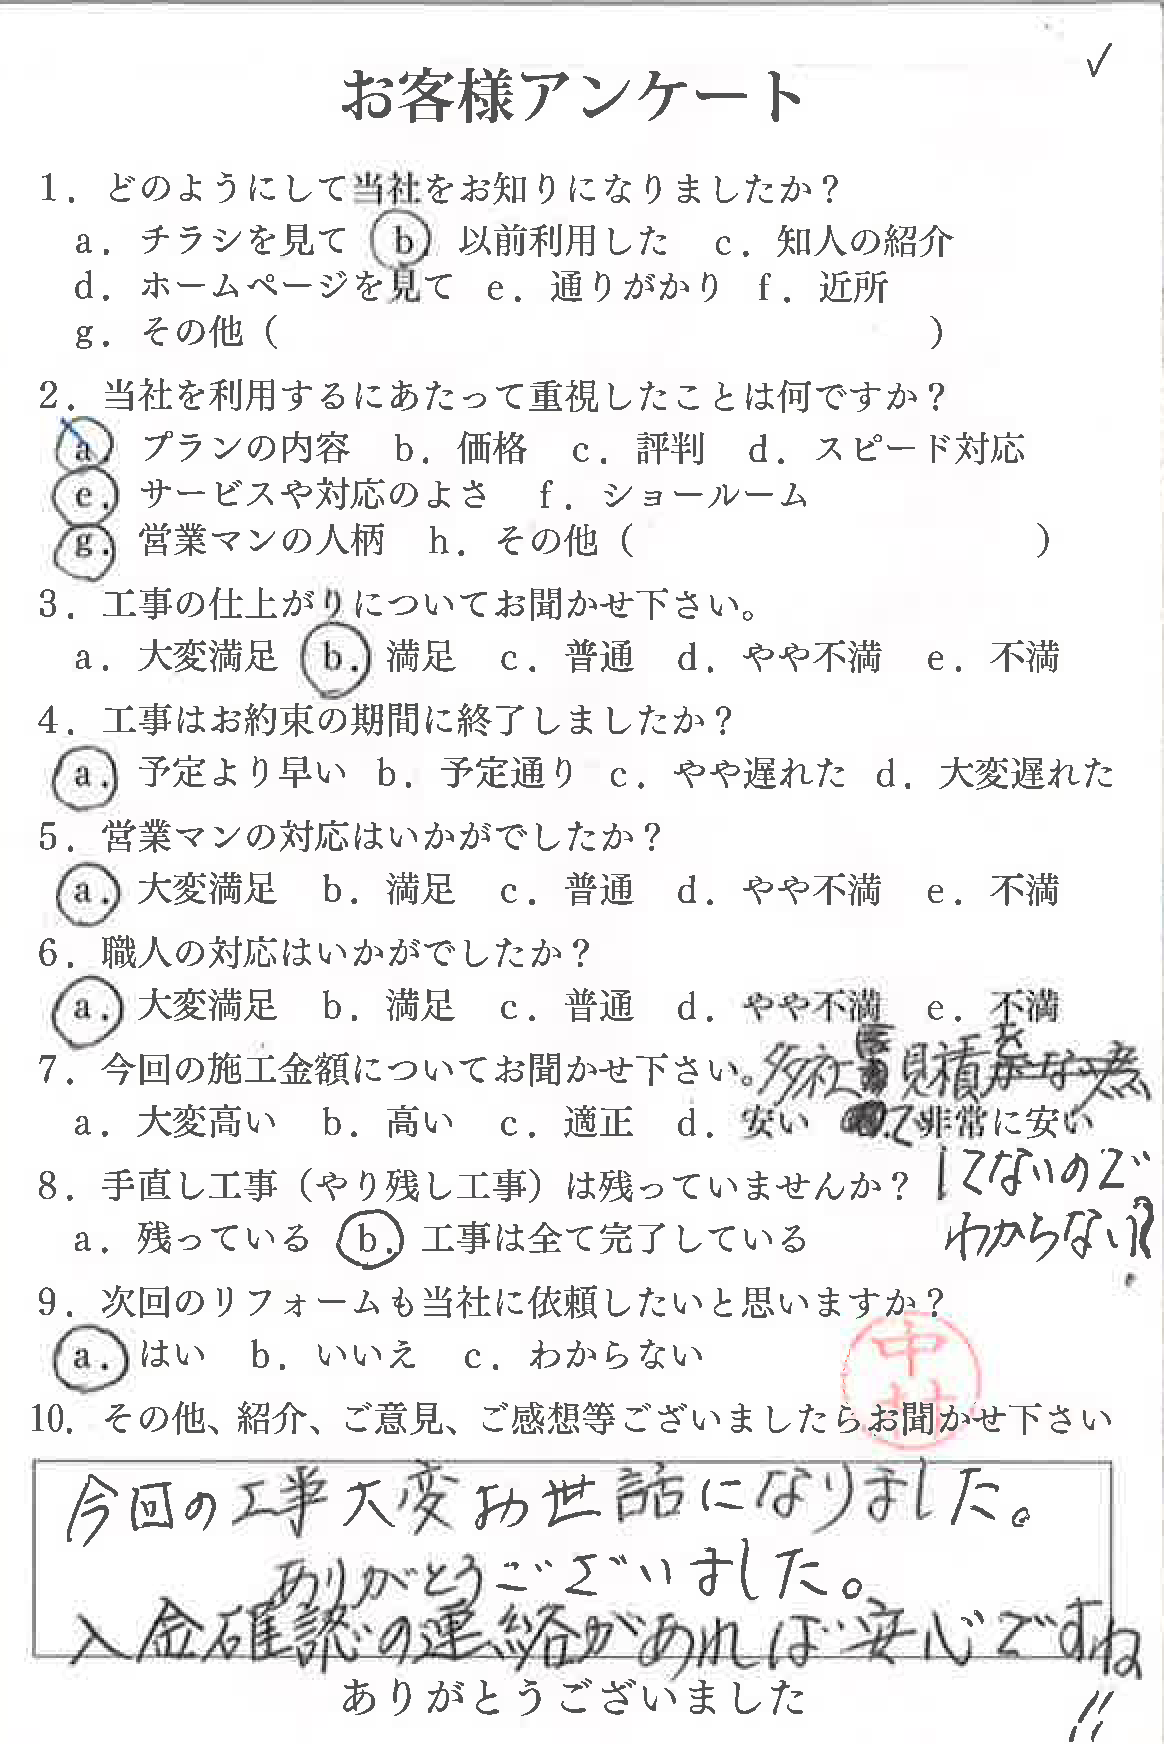 ✓
お客様アンケート
1．どのようにして当社をお知りになりましたか？
a．チラシを見て　b．以前利用した　c．知人の紹介
d．ホームページを見て　e．通りがかり　f．近所
g．その他（　　　　　　　　　　）
2．当社を利用するにあたって重視したことは何ですか？
a．プランの内容　b．価格　c．評判　d．スピード対応
e．サービスや対応のよさ　f．ショールーム
g．営業マンの人柄　h．その他（　　　　　　　　）
3．工事の仕上がりについてお聞かせ下さい。
a．大変満足　b．満足　c．普通　d．やや不満　e．不満
4．工事はお約束の期間に終了しましたか？
a．予定より早い　b．予定通り　c．やや遅れた　d．大変遅れた
5．営業マンの対応はいかがでしたか？
a．大変満足　b．満足　c．普通　d．やや不満　e．不満
6．職人の対応はいかがでしたか？
a．大変満足　b．満足　c．普通　d．やや不満　e．不満
7．今回の施工金額についてお聞かせ下さい。他社 見積を
a．大変高い　b．高い　c．適正　d．安い　非常に安い
してないので
8．手直し工事（やり残し工事）は残っていませんか？
わからない?
a．残っている　b．工事は全て完了している
9．次回のリフォームも当社に依頼したいと思いますか？
a．はい　b．いいえ　c．わからない
中村
10．その他、紹介、ご意見、ご感想等ございましたらお聞かせ下さい
今回の工事大変お世話になりました。
ありがとうございました。
入金確認の連絡があれば安心ですね!!
ありがとうございました